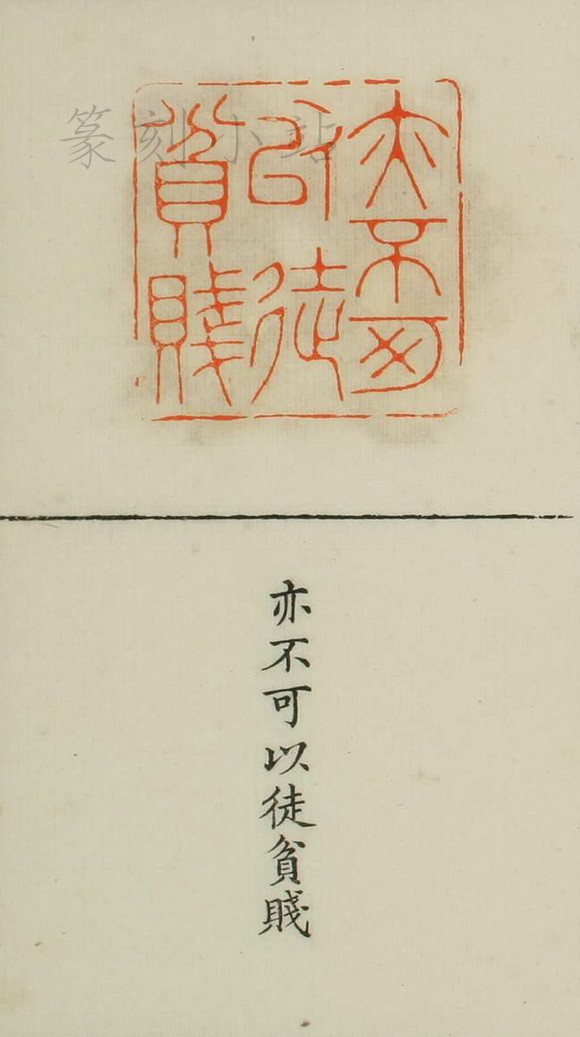 篆刻小站
亦不可
以徒
貧賤
亦不可以徒貧賤